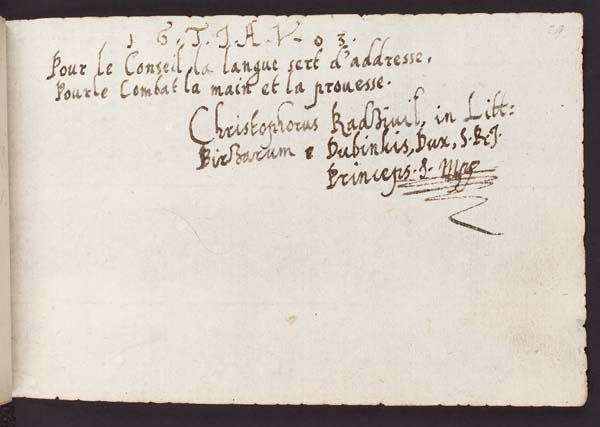 1 6 . T . J . A . V . 0 3 .
Pour le Conseil la langue sert d'addresse,
Pour le Combat la main et la prouesse.
Christophorus Radzivil, in Litt:
Birzarum & Dubinkis, Dux, S. R. J.
Princeps. S. Mpp